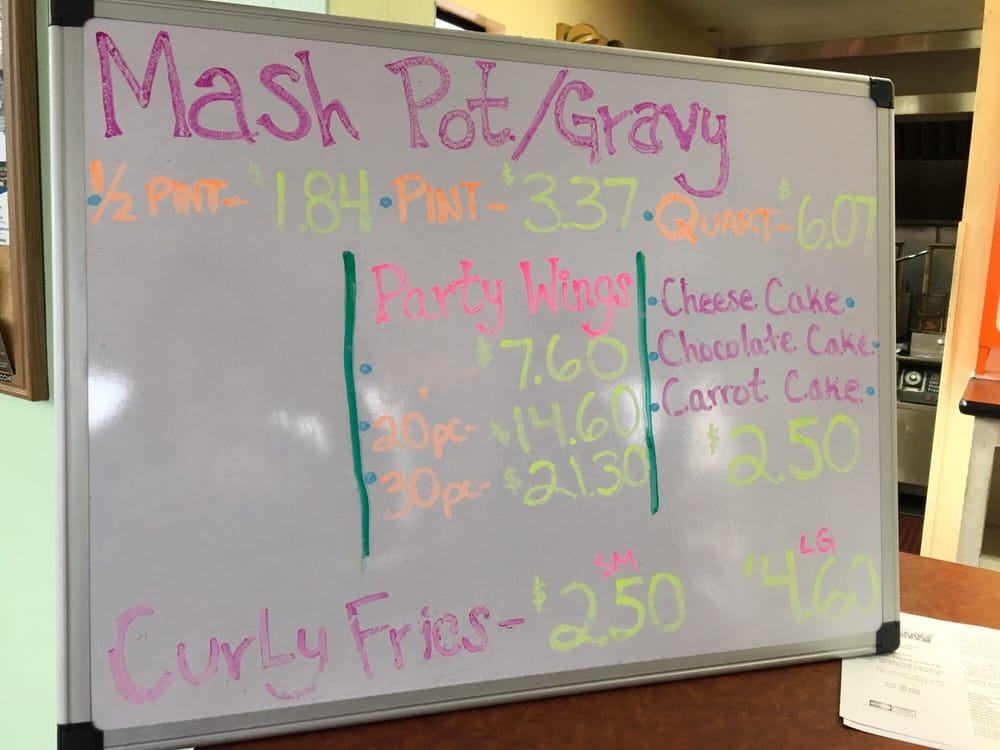 Mash Pot./Gravy
• 1/2 PINT- $1.84 • PINT- $3.37 • QUART- $6.07
Party Wings
• $7.60
• 20pc- $14.60
• 30pc- $21.30
• Cheese Cake •
• Chocolate Cake •
• Carrot Cake •
$2.50
SM LG
Curly Fries- $2.50 $4.60